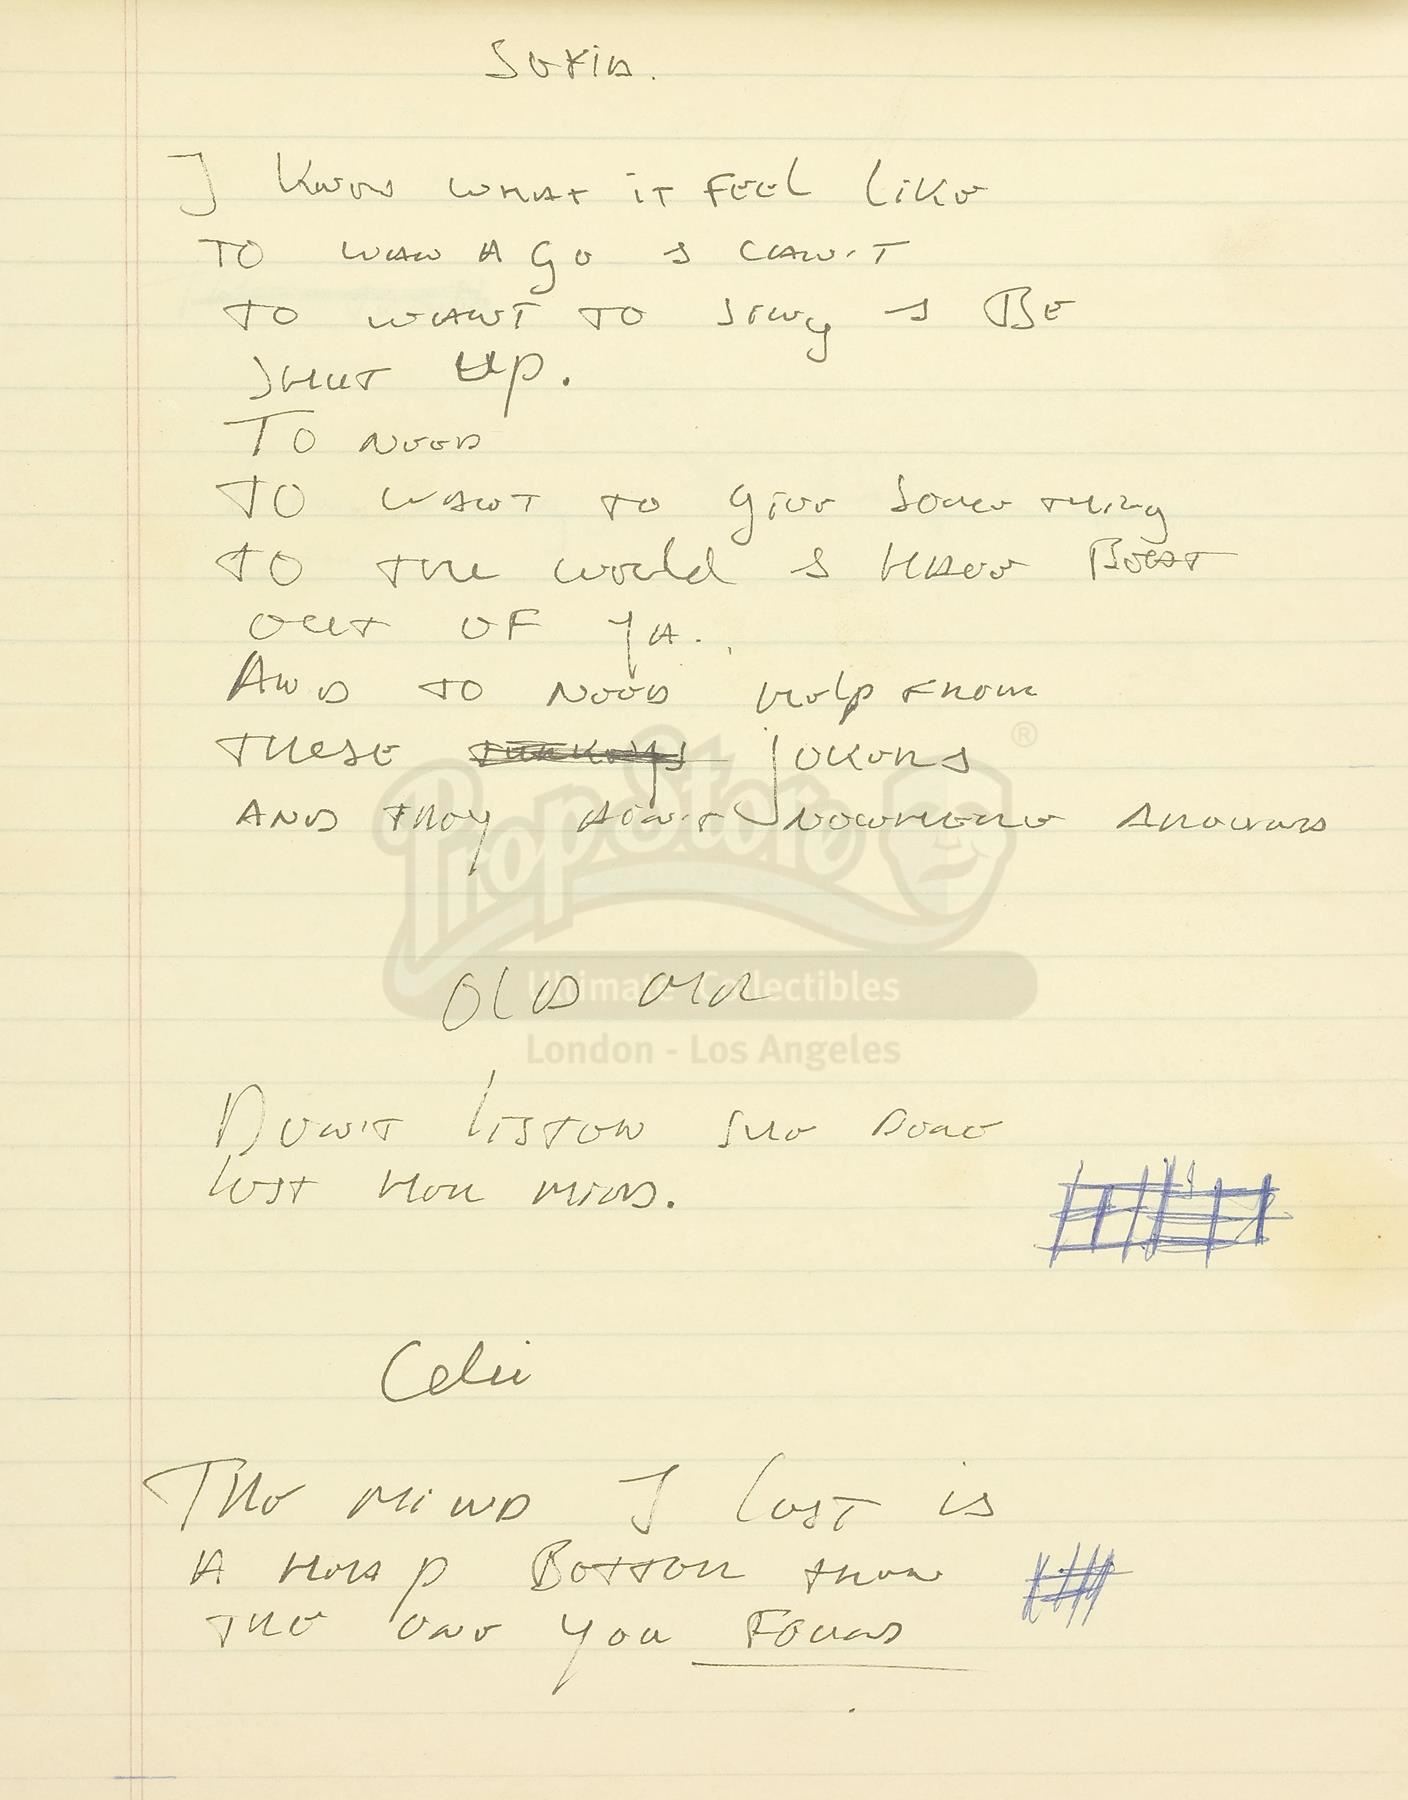 Sofia.
I Know what it feel like
To wan A go & can't
To want to sing & Be
shut up.
To need
To want to give some thing
To the world & have Beat
out of ya.
And to need help from
these jokers
and they ain't nowhere around
Old
Don't listen she done
lost her mind.
Celie
The mind I lost is
A heap Better than
the one you Found
PropStore ®
Ultimate Collectibles
London - Los Angeles